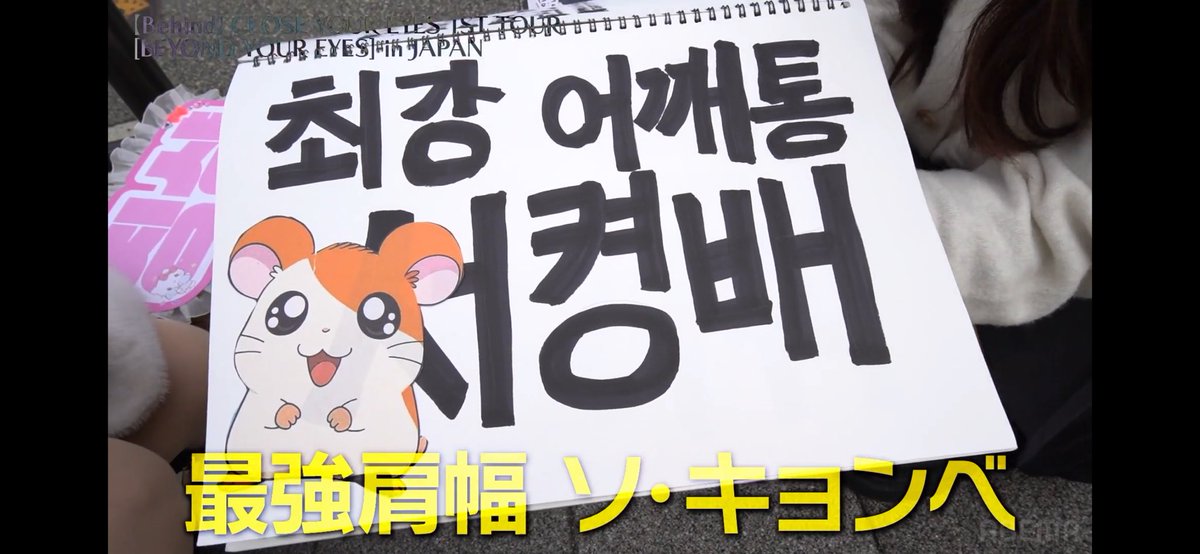 [Behind] CLOSE YOUR EYES 1ST TOUR
[BEYOND YOUR EYES] in JAPAN
최강 어깨통
서켱배
最強肩幅 ソ・キョンベ